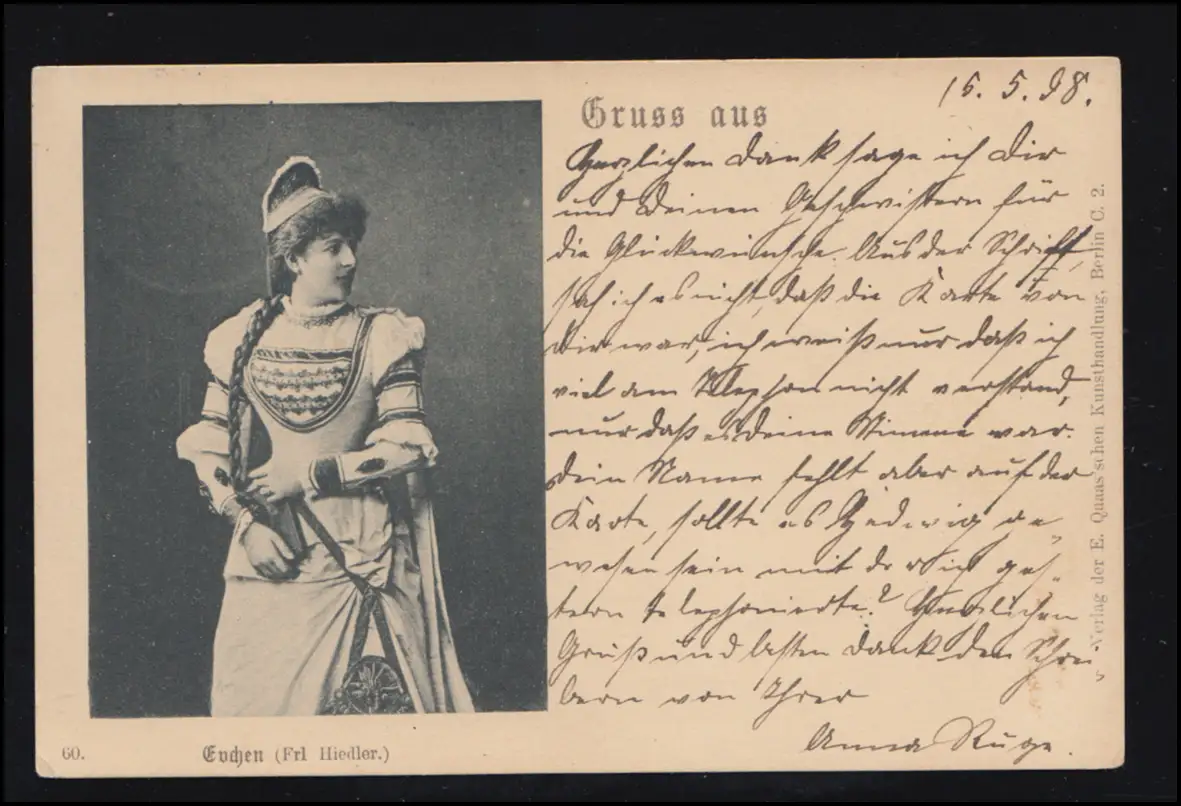 15. 5. 98.
Gruss aus
Herzlichen Dank sage ich Dir
und Deinen Geschwistern für
die Glückwünsche. Aus der Schrift,
sah ich es nicht, daß die Karte von
Dir war, ich weiß nur daß ich
viel am Telephon nicht verstand,
nur daß es Deine Stimme war.
Dein Name fehlt aber auf der
Karte, sollte es Hedwig ge
wesen sein mit der ich ges-
tern telephonierte? Herzlichen
Gruß und besten Dank den Schrei
bern von Ihrer
Anna Ruge.
Verlag der E. Quaas'schen Kunsthandlung, Berlin C. 2.
60.
Evchen (Frl Hiedler.)